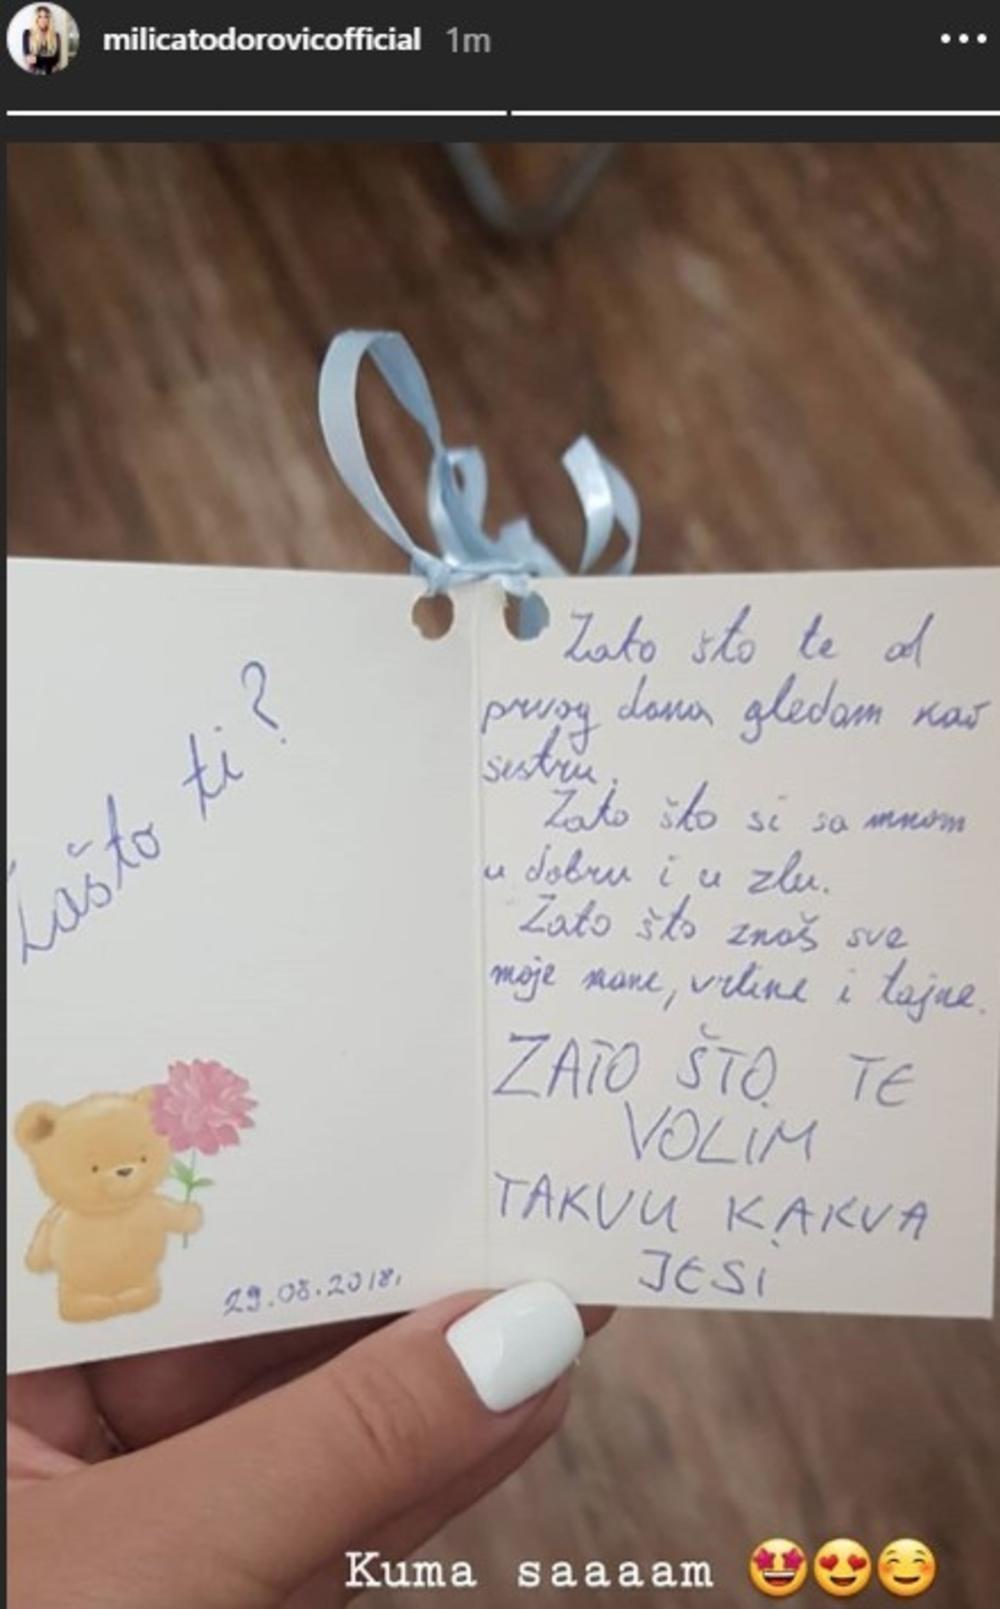 milicatodorovicofficial 1m
Zašto ti?
29.08.2018.
Zato što te od
prvog dana gledam kao
sestru.
Zato što si sa mnom
u dobru i u zlu.
Zato što znaš sve
moje mane, vrline i tajne.
ZATO ŠTO TE
VOLIM
TAKVU KAKVA
JESI
Kuma saaaam 🤩😍☺️